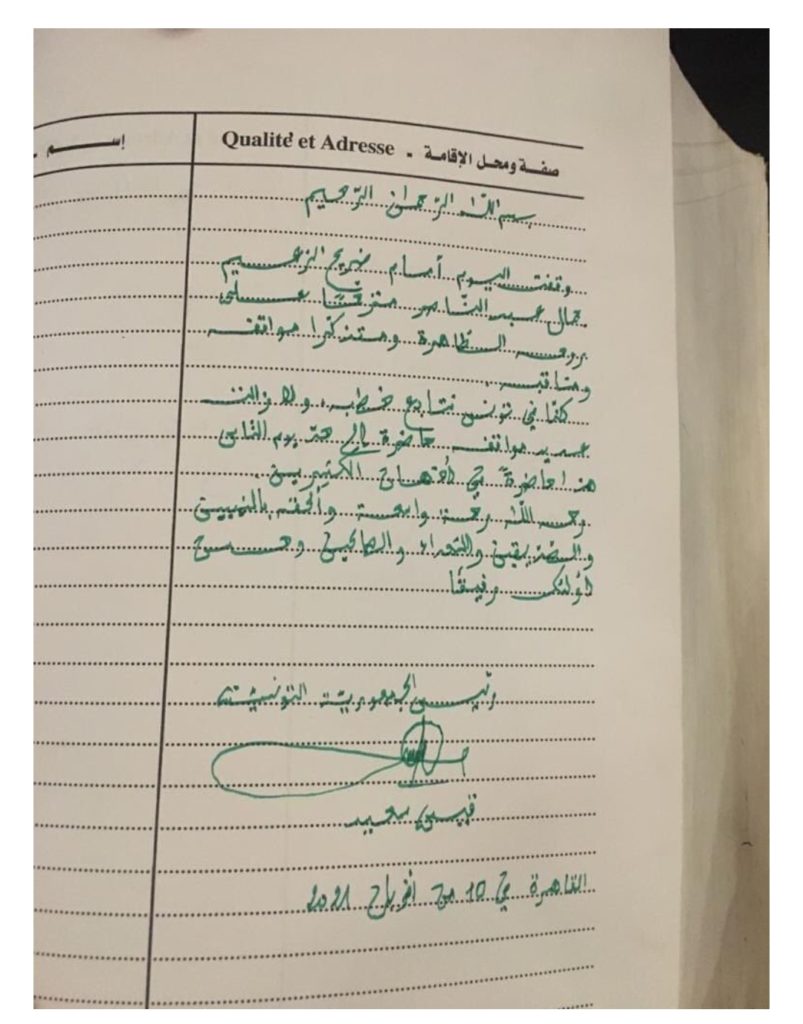 إسم - Qualité et Adresse - صفة ومحل الإقامة
بسم اللّه الرّحمان الرّحيم
وقفت اليوم أمام ضريح الزعيم
جمال عبد النّاصر مترحّمًا على
روحه الطّاهرة ومتذكّرا مواقفه
ومناقبه.
كنّا في تونس نتابع خطبه، ولا زالت
عديد مواقفه حاضرة إلى حدّ يوم النّاس
هذا حاضرة في أذهان الكثيرين.
رحمه اللّه رحمة واسعة وألحقه بالنبيين
والصّدّيقين والشهداء والصالحين وحسن
أولئك رفيقًا
رئيس الجمهوريّة التونسيّة
قيس سعيد
القاهرة في 10 من أفريل 2021